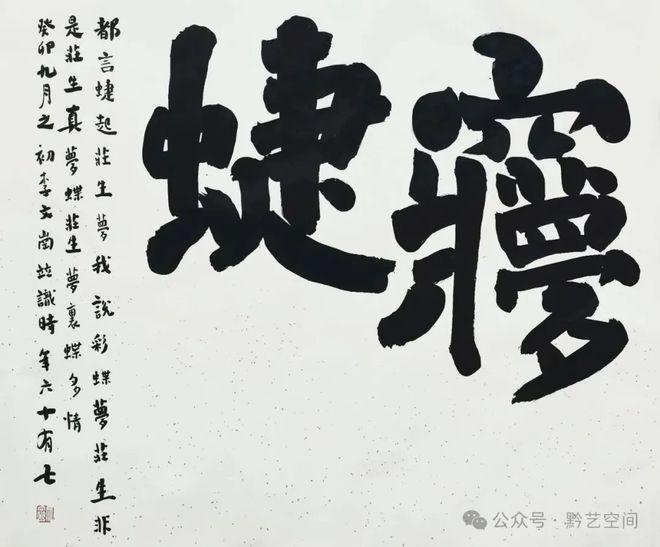 㝱蜨
都言蜨起莊生夢我說彩蝶夢莊生非
是莊生真夢蝶莊生夢裏蝶多情
癸卯九月之初李文崗並識時年六十有七
公众号·黔艺空间